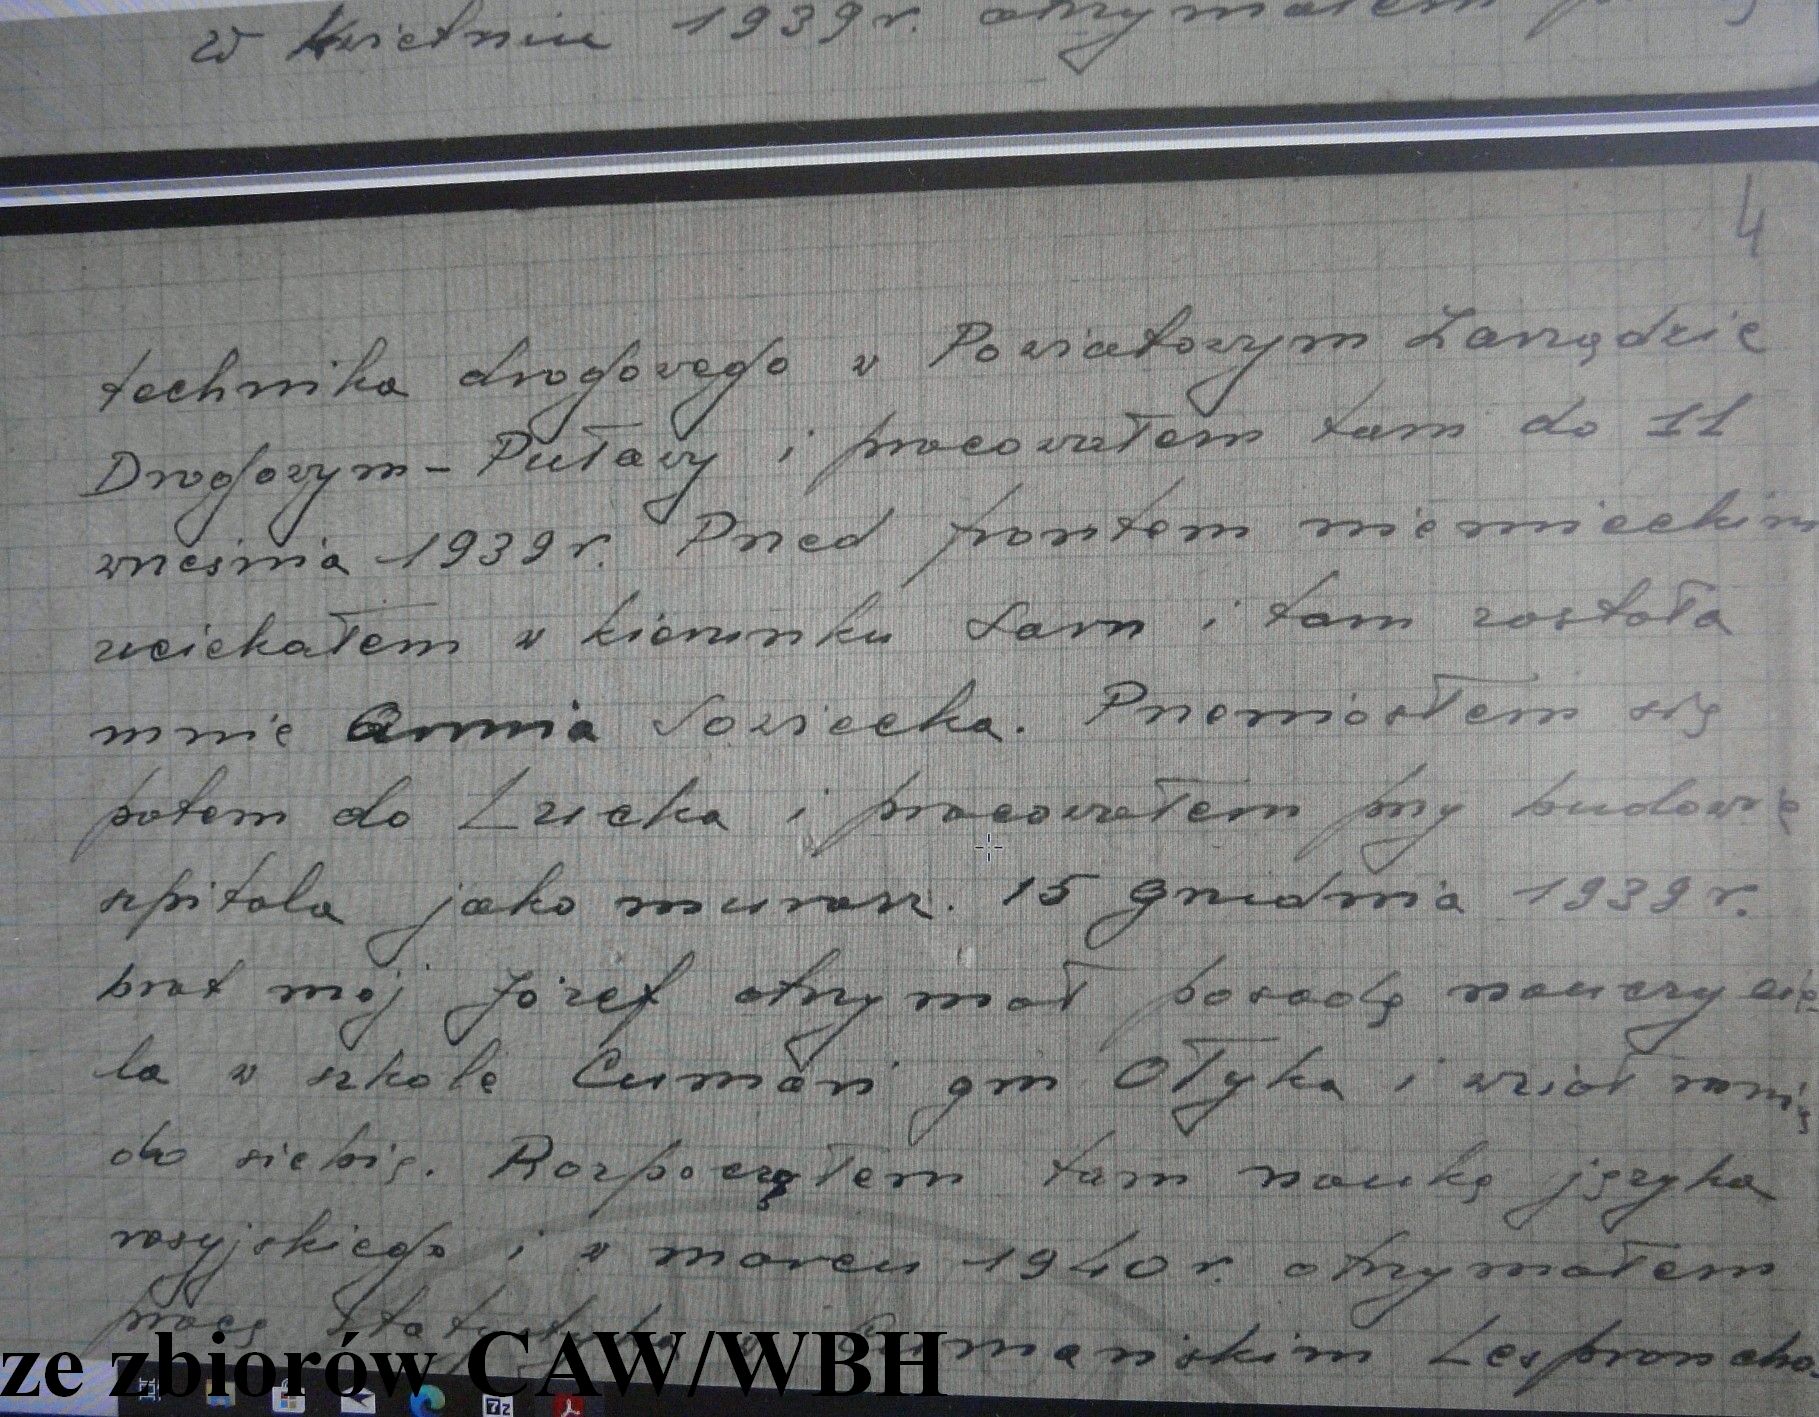 w Kwietniu 1939 r. otrzymałem
4
technika drogowego w Powiatowym Zarządzie
Drogowym - Puławy i pracowałem tam do 11
września 1939 r. Przed frontem niemieckim
uciekałem w kierunku Sarn i tam zostala
mnie Armia Sowiecka. Przeniosłem się
potem do Łucka i pracowałem przy budowie
szpitala jako murarz. 15 grudnia 1939 r.
brat mój Józef otrzymał posadę nauczycie
la w szkole Cumań gm Ołyka i wziął mnie
do siebie. Rozpocząłem tam naukę języka
rosyjskiego i w marcu 1940 r. otrzymałem
pracę statystyka w Cumańskim Lesprom
ze zbiorów CAW/WBH